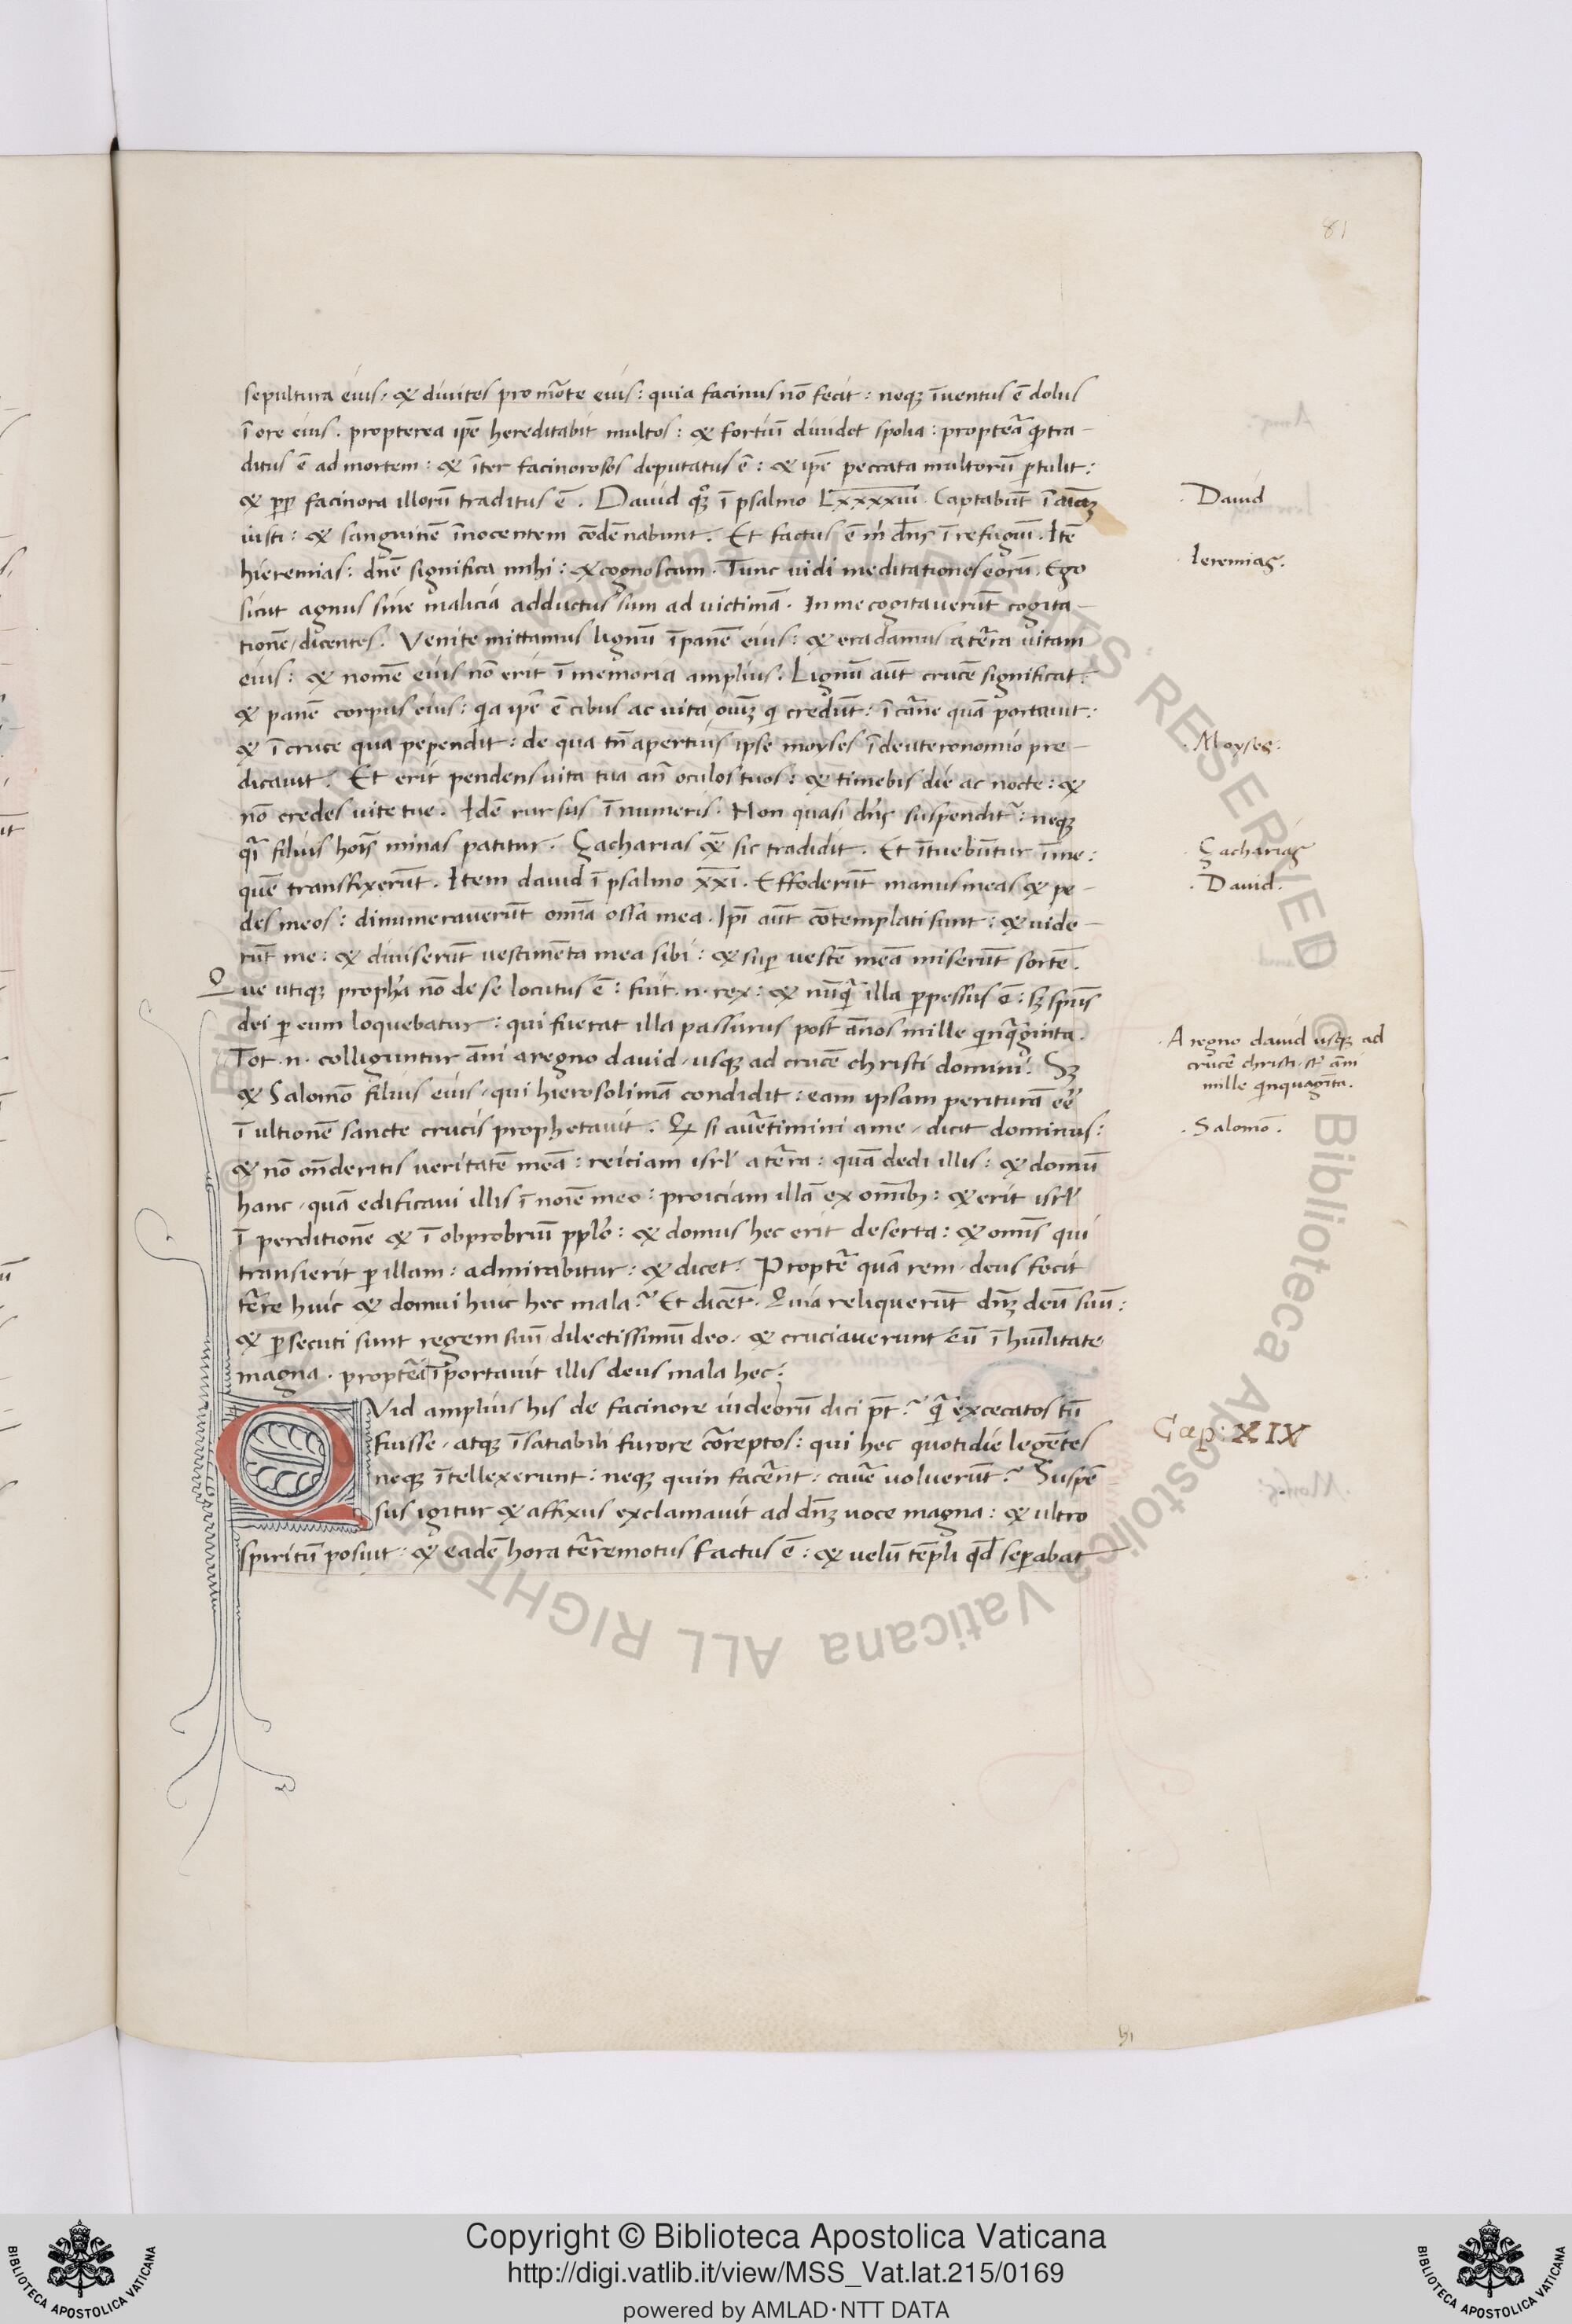 81
sepultura eius, & divites pro mo͂te eius: quia facinus nō fecit: neq; ī ventus ē dolus
ī ore eius. propterea ip̄e hereditabit multos: & fortiū dividet spolia: propte͂a q̄ tra-
ditus ē ad mortem: & īter facinorosos deputatus ē: & ip̄e peccata multorū ꝑtulit:
& pp̄ facinora illorū traditus ē. David quoq; ī psalmo Lxxxxiii. Captabūt ī aīaꝫ
iusti: & sanguinē īnocentem cōdēnabunt. Et factus ē m̄ dn̄s ī refugiū. Itē
hieremias: dn̄e significa mihi: & cognoscam. Tunc vidi meditationes eorū. Ego
sicut agnus sine malicia adductus sum ad victimā. In me cogitaverūt cogita-
tionē, dicentes. Venite mittamus lignū ī panē eius: & eradamus a te͂ra vitam
eius: & nomē eius nō erit ī memoria amplius. Lignū aūt crucē significat:
& panē corpus eius: q͛a ip̄e ē cibus ac vita oīuꝫ q͛ credūt: ī ca͂ne quā portavit:
& ī cruce qua pependit: de qua tn̄ apertius ipse moyses ī deuteronomio pre-
dicavit. Et erit pendens vita tua an̄ oculos tuos: & timebis die ac nocte: &
nō credes vite tue. Idē rursus ī numeris. Non quasi dn̄s suspendit͂: neq;
q͛ī filius hoīs minas patitur. Çacharias q̄ sic tradidit. Et ītuebūtur ī me:
quē transfixerūt. Item david ī psalmo xxi. Effoderūt manus meas & pe-
des meos: dinumeraverūt om̄ia ossa mea. Ip̄i aūt cōtemplati sunt: & vide-
rūt me: & diviserūt vestimēta mea sibi: & suꝑ vestē meā miserūt sortē.
Que utiq; proph͂a nō de se locutus ē: fuit .n. rex: & nūq͛ illa ꝑpessus ē: sꝫ sp̄us
dei ꝑ eum loquebatur: qui fuerat illa passurus post ānos mille q͛nq͛ginta.
Tot .n. colliguntur āni a regno david, usq; ad crucē christi domini. Sꝫ
& Salomō filius eius, qui hierosolimā condidit: eam ipsam perituram eē
ī ultionē sancte crucis prophetavit. Q̄ si ave͂timini a me, dicit dominus:
& nō on̄deritis veritatē meā: reiciam isrl̄ a te͂ra: quā dedi illis: & domū
hanc, quā edificavi illis ī noīe meo: proiciam illā ex omībꝫ: & erit isrl̄
ī perditionē & ī obprobriū ppl̄o: & domus hec erit deserta: & om̄is qui
transierit ꝑ illam: admirabitur: & dicet. Propte͂ quā rem, deus fecit
te͂re huic & domui huic hec mala? Et dicēt. Quia reliquerūt dn̄ꝫ deū suū:
& ꝑsecuti sunt regem suū dilectissimū deo, & cruciaverunt eū ī hūilitate
magna. propte͂a īportavit illis deus mala hec:
QVid amplius his de facinore iudeorū dici pt̄? q͛ excecatos tū
fuisse, atq; īsatiabili furore co͂reptos: qui hec quotidie legētes
neq; ītellexerunt: neq; quin face͂nt: cave͂ voluerūt? Suspē
sus igitur & affixus exclamavit ad dn̄ꝫ voce magna: & ultro
spiritū posuit: & eadē hora te͂remotus factus ē: & velū tēpli qd̄ seꝑabat
. David
. Ieremias.
. Moyses:
. Çacharias
. David.
. A regno david usq; ad
crucē christi, st͂ āni
mille q͛nquagīta.
. Salomō.
Cap: XIX
Copyright © Biblioteca Apostolica Vaticana
http://digi.vatlib.it/view/MSS_Vat.lat.215/0169
powered by AMLAD·NTT DATA
BIBLIOTECA APOSTOLICA VATICANA
BIBLIOTECA APOSTOLICA VATICANA
© Biblioteca Apostolica Vaticana ALL RIGHTS RESERVED